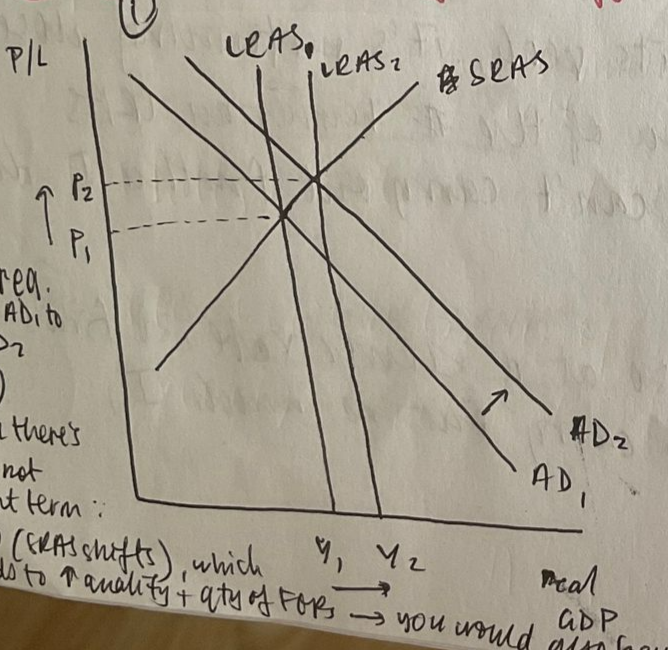 ①
P/L
LRAS₁
LRAS₂
SRAS
P₂
P₁
req.
AD₁ to
D₂
there's
not
t term :
(SRAS shifts), which
to ↑ quality + qty of FOPs → you would also
Y₁ Y₂
real
GDP
AD₂
AD₁